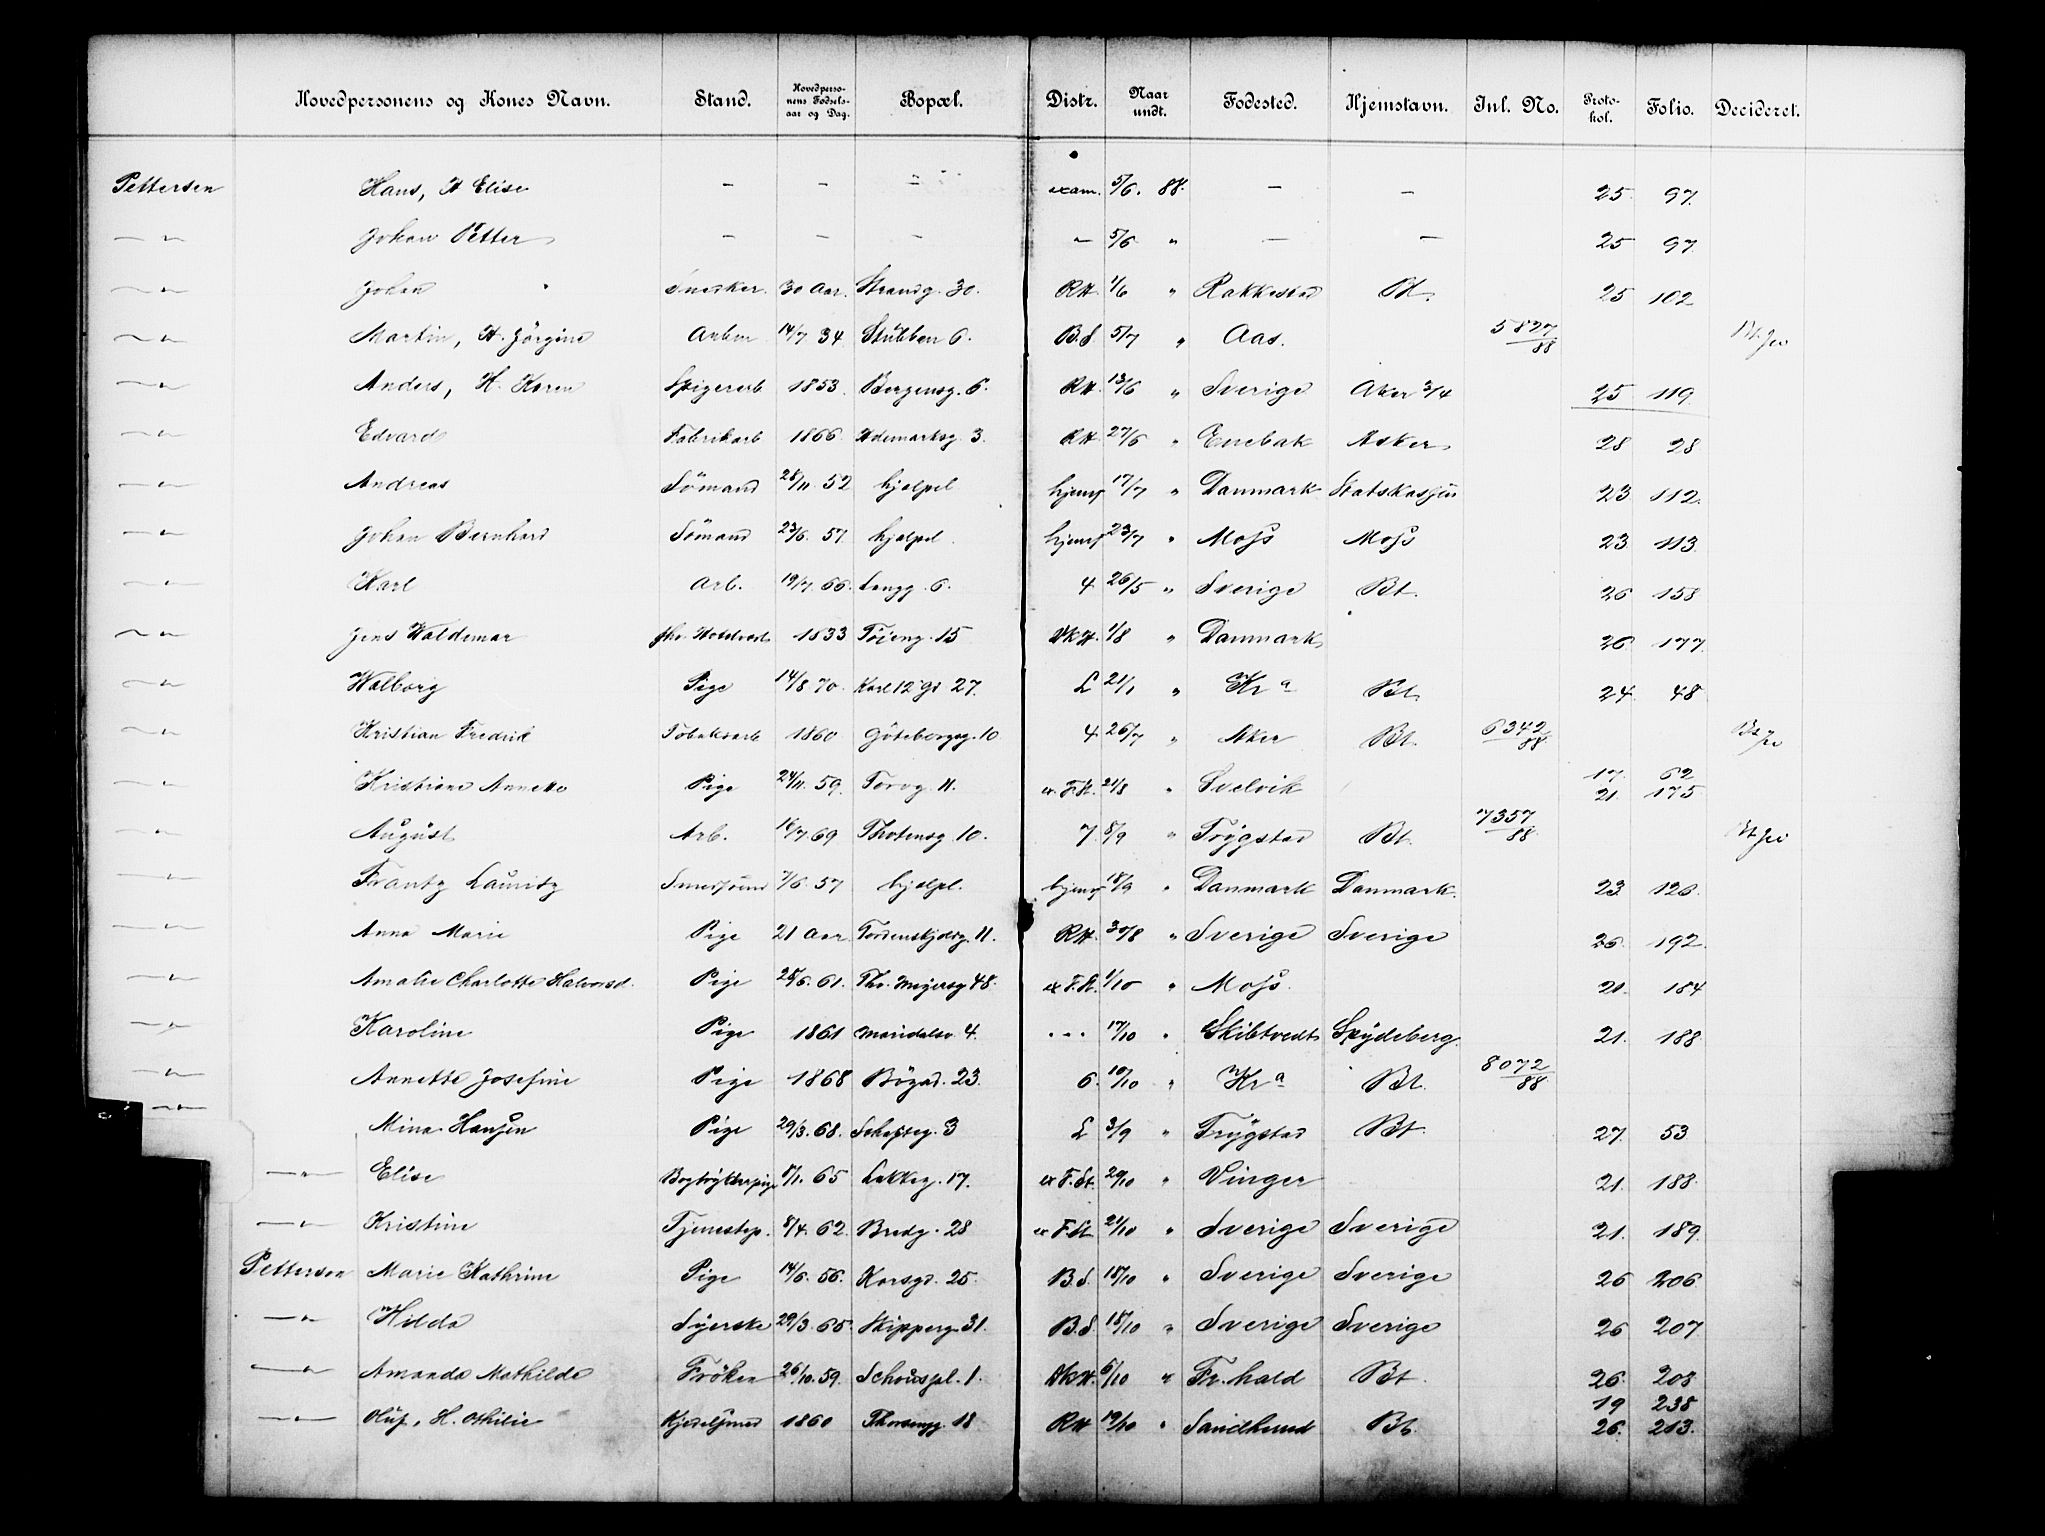 Hovedpersonens og Kones Navn. Stand. Hovedpersonens Fødselsaar og Dag. Bopæl. Distr. Naar undt. Fødested. Hjemstavn. Inl. No. Protokol. Folio. Decideret.
Pettersen Hans, H Elise — — — exam. 5/6. 88. — — 25 97.
—"— Johan Petter — — — — 5/6 " — — 25 97.
—"— Johan " Snedker. 30 Aar. Strandg. 30. RH. 1/6 " Rakkestad Bt. 25 102
—"— Martin, H. Jörgine Arbm 14/7 34 Stubben 6. B.S. 5/7 " Aas. 5827/88
—"— Anders, H. Karen Spigerarb 1853. Bergensg. 6. RH. 13/6 " Sverige Aker 3/4 25 119.
—"— Edvard Fabrikarb 1866. Hdemarksg. 3. RH. 27/6 " Enebak Asker 28 28
—"— Andreas Sömand 28/11. 52 hjelpel hjemf 17/7 " Danmark Statskassen 23 112.
—"— Johan Bernhard Sömand 23/6. 57. hjelpel. hjemf 23/7 " Moss Moss 23 113.
—"— Karl Arb. 19/7. 66. Langg. 6. 4 26/5 " Sverige Bt. 26 158
—"— Jens Waldemar 1833 Töieng. 15 1/8 " Danmark 26 177.
—"— Walborg Pige 14/8 70. Karl 12 Gd 27. L 21/1 " Kra Bt. 24. 48
—"— Kristian Fredrik Tobaksarb 1860 Göteborgsg. 10 4 26/7 " Aker Bt. 6342/88
—"— Kristiane Annette Pige 24/11. 59. Torvg. 11. ex. F.St. 21/8 " Svelvik 17. 62
21. 175
—"— August Arb. 16/7. 69 Thotensg 10. 7. 8/9 " Trygstad Bt. 7357/88
—"— Frantz Lauritz 7/6. 57 hjelpl. hjemf 18/9 " Danmark Danmark. 23. 126.
—"— Anna Marie Pige 21 Aar Tordenskjoldsg. 11. RH. 30/8 " Sverige Sverige 26. 192.
—"— Amalie Charlotte Halvorsd. Pige 28/6. 61. Thv. Meyersg 48. ex F.St. 1/10 " Moss. 21. 184
—"— Karoline Pige 1861 Maridalsv. 4. " " " 17/10 " Skibtvedt Spydeberg. 21. 188
—"— Annette Josefine Pige 1868 Bögad. 23. 6. 10/10 " Kra Bt. 8072/88
—"— Mina Hansen Pige 29/3. 68. Schopteg. 3 L 3/9 " Trygstad Bt. 27. 53
—"— Elise Bogtrykkerpige 8/1. 65 Lakkeg. 17. ex F.St. 20/10 " Vinger 21. 188.
—"— Kristine Tjenestep. 8/4. 62. Bredg. 28 ex F.St 21/10 " Sverige Sverige 21. 189.
Pettersen Marie Kathrine Pige 14/6. 56. Korsgd. 25. B.S. 18/10 " Sverige Sverige 26 206.
—"— Hilda Syerske 29/3. 65. Skipperg. 31. B.S. 18/10 " Sverige Sverige 26 207
—"— Amanda Mathilde Fröken 26/10. 59. Schouspl. 1. 6/10 " Fr.hald Bt. 26. 208
19 238
—"— Oluf, H. Othilie Kjedelsmed 1860 18 RH 19/10 " Bt. 26. 213.